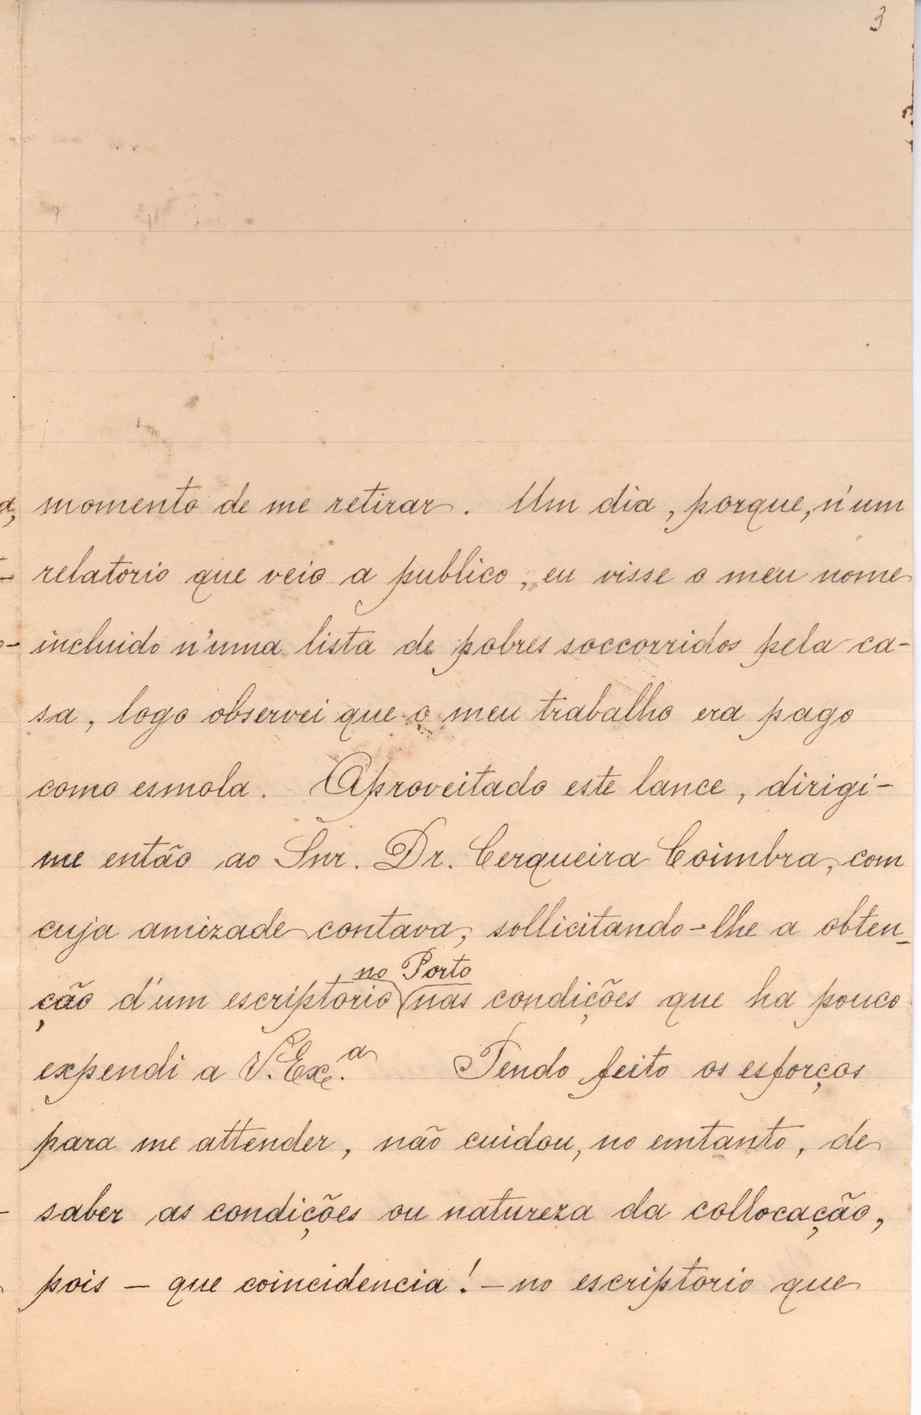 3
momento de me retirar. Um dia, porque, n'um
relatorio que veio a publico, eu visse o meu nome
incluido n'uma lista de pobres soccorridos pela ca-
sa, logo observei que o meu trabalho era pago
como esmola. Aproveitado este lance, dirigi-
me então ao Snr. Dr. Cerqueira Coimbra, com
cuja amizade contava, sollicitando-lhe a obten-
no Porto
ção d'um escriptorio nas condições que ha pouco
expendi a V. Ex.ª Tendo feito os esforços
para me attender, não cuidou, no emtanto, de
saber as condições ou natureza da collocação,
pois – que coincidencia! – no escriptorio que